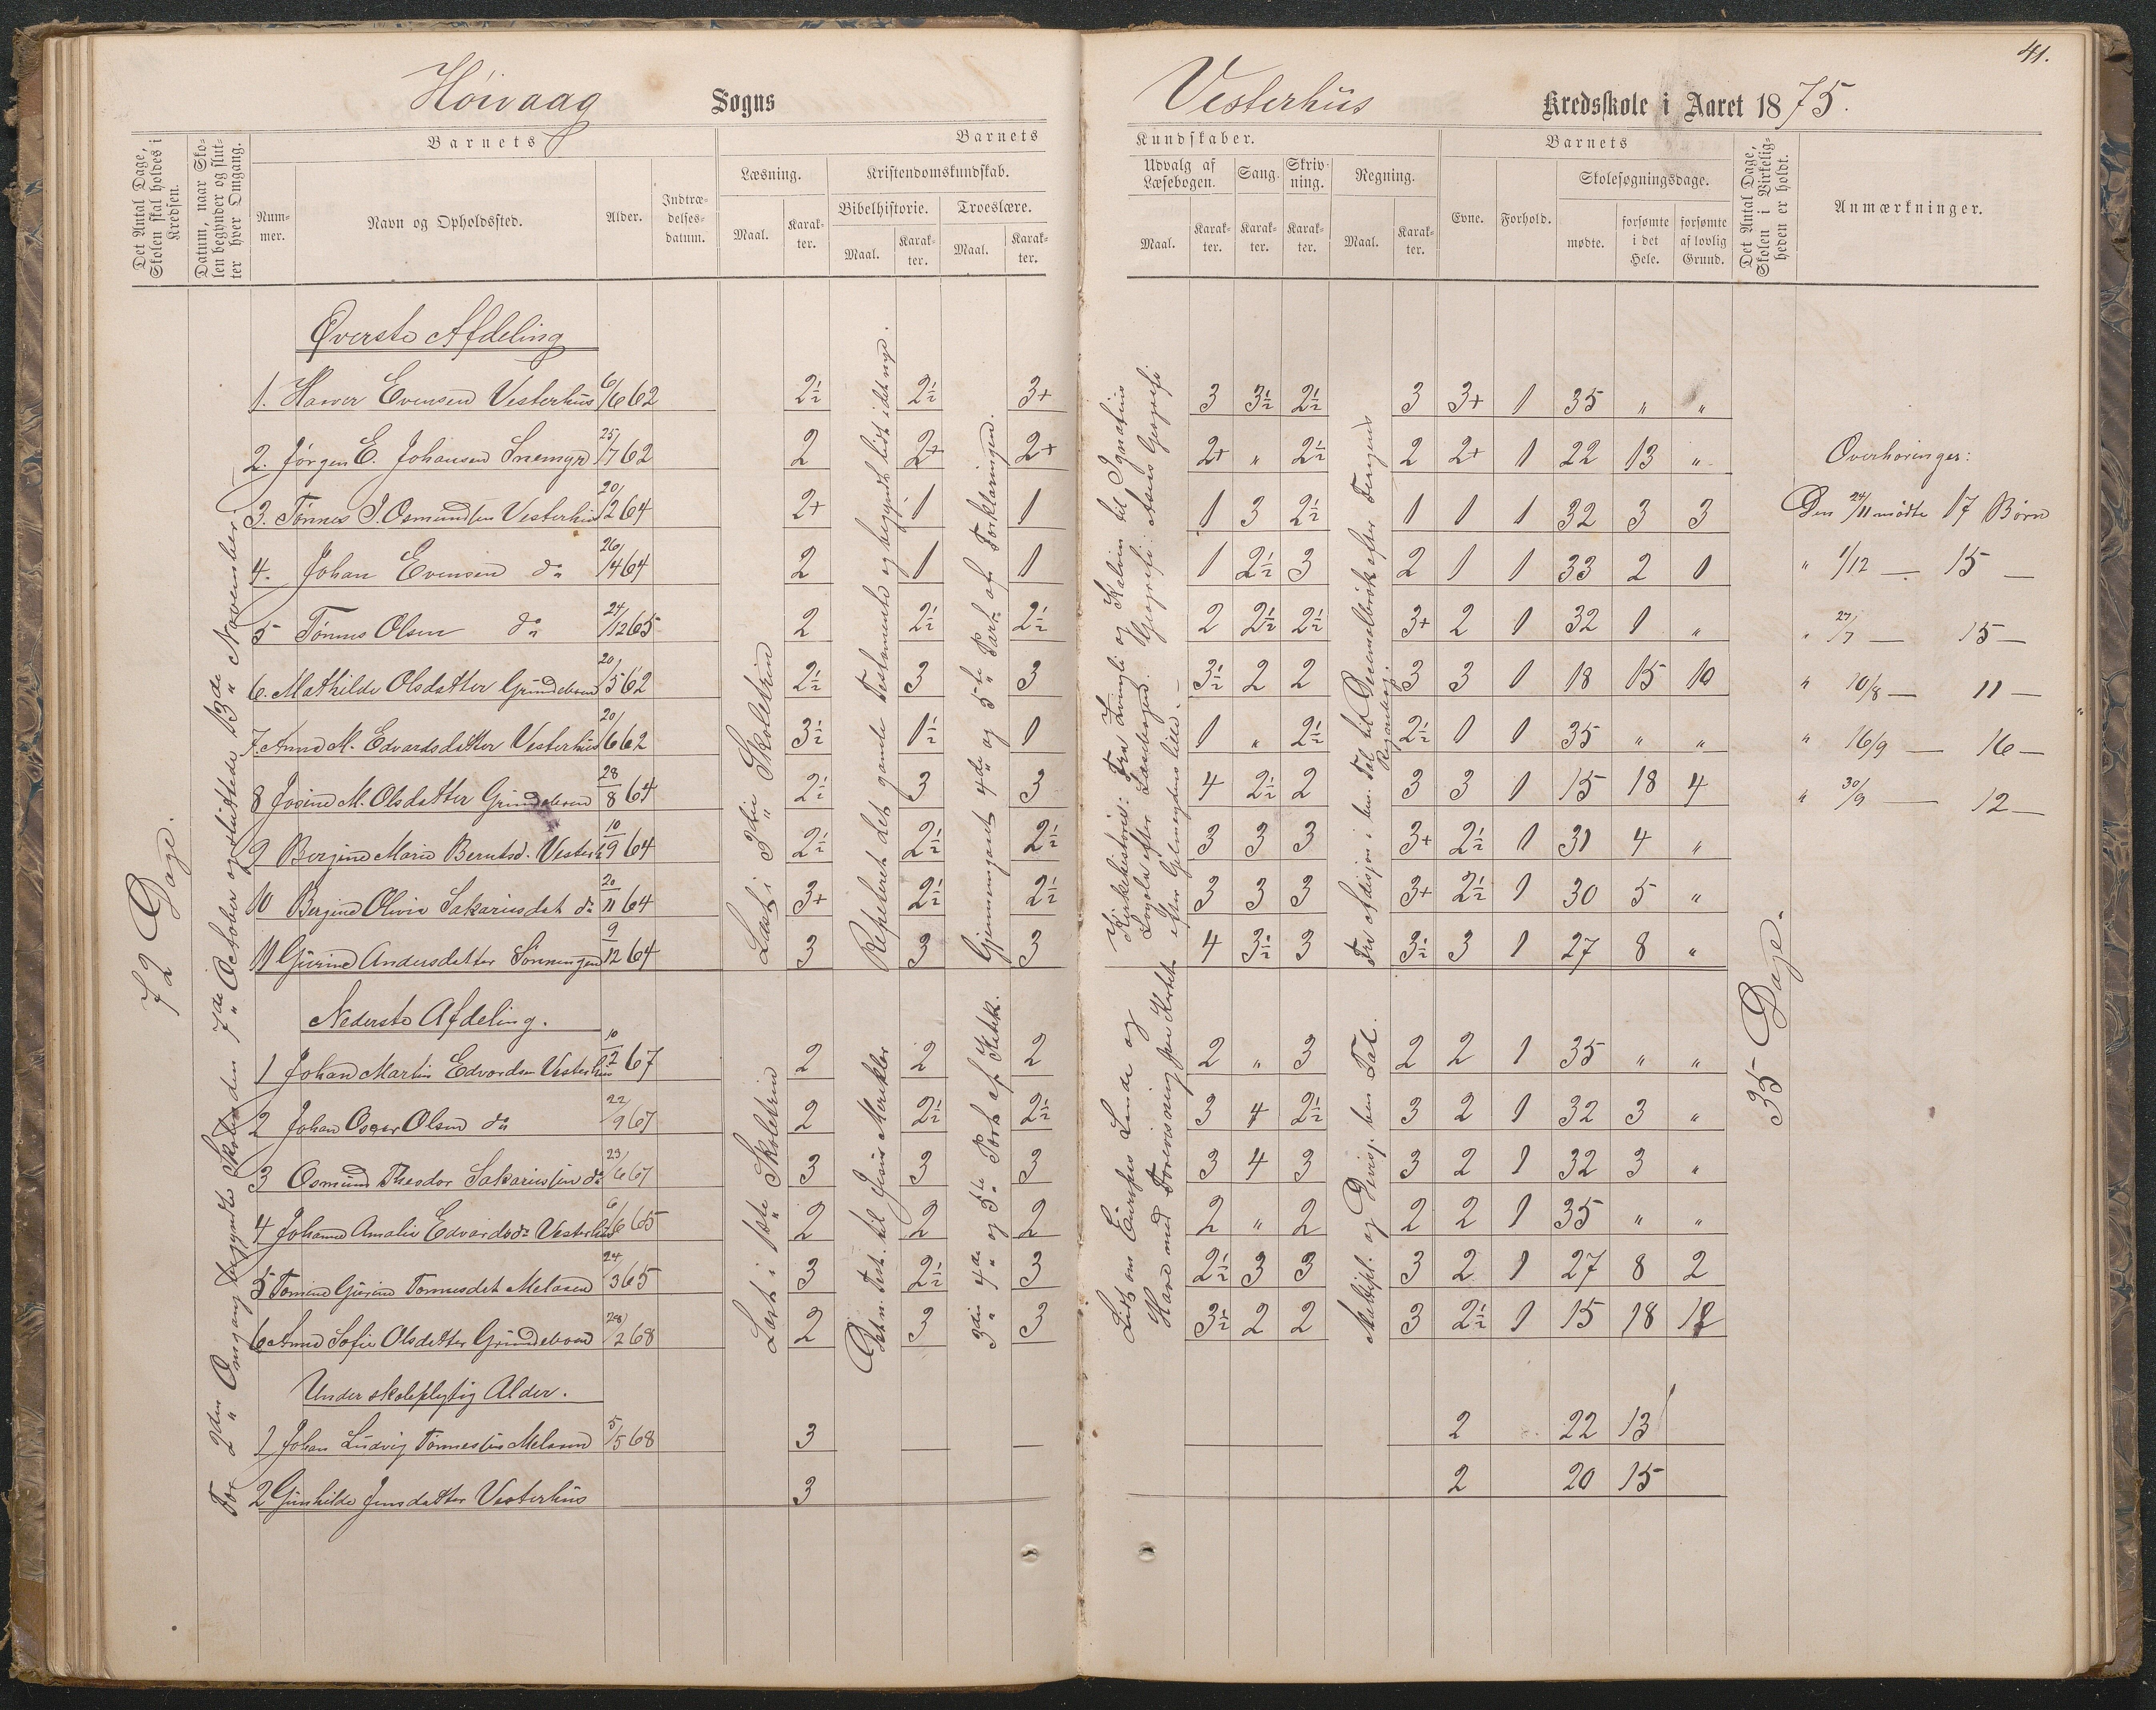 41.
Høivaag Sogns Vesterhus Kredsskole i Aaret 1875.
Det Antal Dage, Skolen skal holdes i Kredsen.
Datum, naar Skolen begynder og slutter hver Omgang.
Barnets
Nummer.
Navn og Opholdssted.
Alder.
Indtrædelsesdatum.
Barnets Kundskaber.
Læsning.
Maal. Karakter.
Kristendomskundskab.
Bibelhistorie. Troeslære.
Maal. Karakter. Maal. Karakter.
Udvalg af Læsebogen. Sang. Skrivning. Regning.
Maal. Karakter. Karakter. Karakter. Maal. Karakter.
Barnets
Evne. Forhold. Skolesøgningsdage.
mødte. forsømte i det Hele. forsømte af lovlig Grund.
Det Antal Dage, Skolen i Virkeligheden er holdt.
Anmærkninger.
72 Dage.
For 2den Omgang begyndte Skolen den 7de October og sluttede 13de November.
Øverste Afdeling
1. Hawer Evensen Vesterhus 6/6 62 2½ 2½ 3+ 3 3½ 2½ 3 3+ 1 35 " "
2. Jørgen E. Johansen Snemyr 25/7 62 2 2+ 2+ 2+ " 2½ 2 2+ 1 22 13 "
3. Tønnes J. Osmundsen Vesterhus 20/2 64 2+ 1 1 1 3 2½ 1 1 1 32 3 3
4. Johan Evensen do 26/4 64 2 1 1 1 2½ 3 2 1 1 33 2 1
5 Tønnes Olsen do 24/12 65 2 2½ 2½ 2 2½ 2½ 3+ 2 1 32 1 "
6. Mathilde Olsdatter Grundeleven 20/5 62 2½ 3 3 3½ 2 2 3 3 1 18 15 10
7. Anne M. Edvardsdatter Vesterhus 20/6 62 3½ 1½ 1 1 " 2½ 2½ 1 1 35 " "
8 Josine M. Olsdatter 28/8 64 2½ 3 3 4 2½ 2 3 3 1 15 18 4
9 Bergine Marie Berntsd. Vesterh 10/9 64 2½ 2½ 2½ 3 3 3 3+ 2½ 1 31 4 "
10 Bergine Olivie Sakariasdat do 20/11 64 3+ 2½ 2½ 3 3 3 3+ 2½ 1 30 5 "
11 Gurine Andersdatter Sønningen 9/12 64 3 3 3 4 3½ 3 3½ 3 1 27 8 "
Læst i 3die Skoletrin
Repeteret det gamle Testamente og begyndt lidt i det nye.
Gjennemgaaet 4de og 5te Part af Forklaringen.
Kirkehistorie: Fra Zwingli og Kalvin til Ignatius Loyola efter Læsebogen. Geografi: Asiens Geografi
Fra Adisjon i ben. Tal til Decimalbrøk efter Tergens Regnebog
Nederste Afdeling.
1 Johan Martin Edvardsen Vesterhus 10/2 67 2 2 2 2 " 3 2 2 1 35 " "
2 Johan Oscar Olsen do 22/9 67 2 2½ 2½ 3 4 2½ 3 2 1 32 3 "
3 Osmund Theodor Sakariassen do 23/6 67 3 3 3 3 4 3 3 2 1 32 3 "
4 Johanne Amalie Edvardsd. Vesterhus 6/6 65 2 2 2 2 " 2 2 2 1 35 " "
5 Tomine Gurine Tønnesdet Melaaen 24/3 65 3 2½ 3 2½ 3 3 3 2 1 27 8 2
6 Anne Sofie Olsdatter 28/2 68 2 3 3 3½ 2 2 3 2½ 1 15 18
Læst i 1ste Skoletrin
Det n. Test. til Jesus Mirakler
3die 4de og 5te Part af Katek.
Lidt om Europas Lande og Have med Forevisning paa Kartet
Multipl. og Divisj. ben Tal.
Under skolepligtig Alder.
1 Johan Ludvig Tønnessen Melaaen 5/5 68 3 — — 2 22 13
2 Gunhilde Jensdatter Vesterhus 3 2 20 15
35 Dage.
Overhøringer:
Den 24/11 mødte 17 Børn
" 1/12 — 15 —
" 27/7 — 15 —
" 10/8 — 11 —
" 16/9 — 16 —
" 30/9 — 12 —